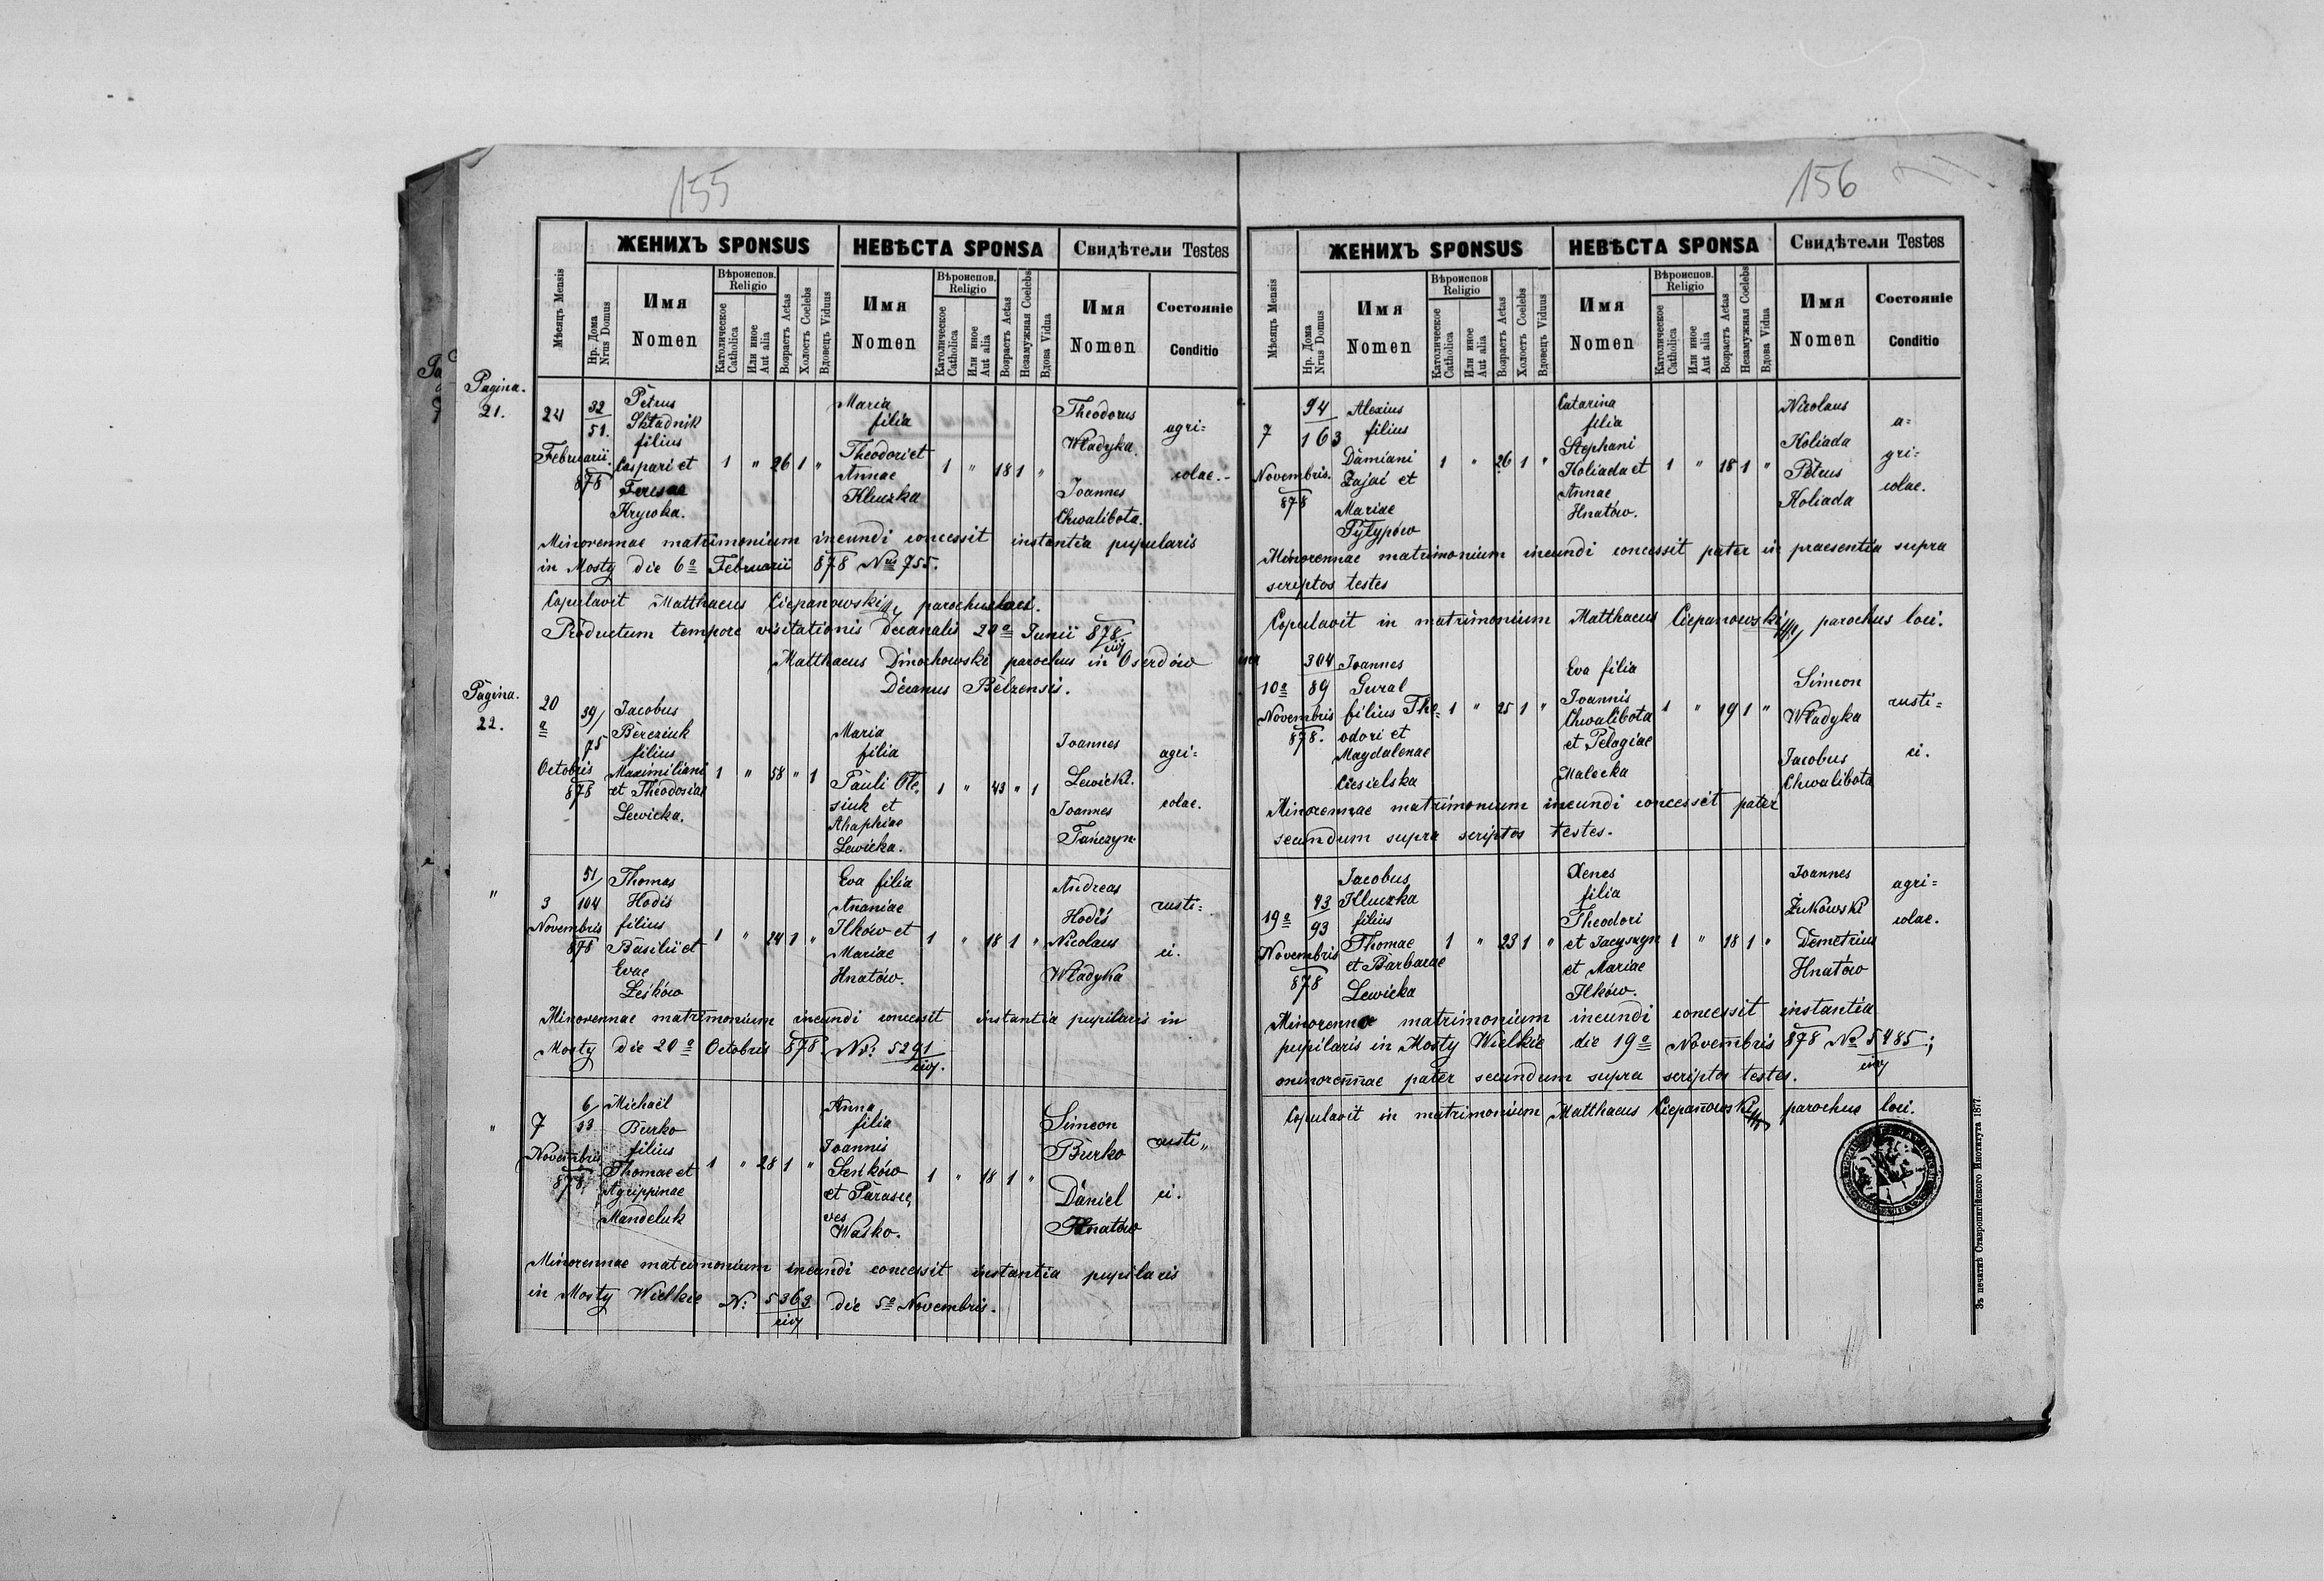 155
ЖЕНИХЪ SPONSUS
НЕВѢСТА SPONSA
Свидѣтели Testes
Мѣсяцъ Mensis
Нр. Дома
Nrus Domus
Имя
Nomen
Вѣроиспов.
Religio
Католическое
Catholica
Или иное
Aut alia
Возрастъ Aetas
Холостъ Coelebs
Вдовецъ Viduus
Имя
Nomen
Вѣроиспов.
Religio
Католическое
Catholica
Или иное
Aut alia
Возрастъ Aetas
Незамужная Coelebs
Вдова Vidua
Имя
Nomen
Состояніе
Conditio
Pagina.
21.
24
Februarii
878
32
51.
Petrus
Składnik
filius
Caspari et
Teresae
Krywka.
1 " 26 1 "
Maria
filia
Theodori et
Annae
Kluczka
1 " 18 1 "
Theodorus
Władyka.
Joannes
Chwalibota.
agri=
colae.-
Minorennae matrimonium ineundi concessit instantia pupularis
in Mosty die 6a Februarii 878 Nus 755.
Copulavit Matthaeus Ciepanowski parochus loci.
Productum tempore visitationis decanalis 20a Junii 878
Matthaeus Dinochowski parochus in Oserdów
Decanus Bełzensis.
Pagina.
22.
20
a
Octobris
878
39/
75
Jacobus
Bereziuk
filius
Maximiliani
et Theodosiae
Lewicka.
1 " 58 " 1
Maria
filia
Pauli Ole,
siuk et
Ahaphiae
Lewicka.
1 " 43 " 1
Joannes
Lewicki.
Joannes
Tańczyn.
agri=
colae.
"
3
Novembris
878
51/
104
Thomas
Hodis
filius
Basilii et
Evae
Leśków
1 " 24 1 "
Eva filia
Ananiae
Ilków et
Mariae
Hnatów.
1 " 18 1 "
Andreas
Hodiś
Nicolaus
Władyka
rusti=
ci.
Minorennae matrimonium ineundi concessit instantia pupilaris in
Mosty die 20a Octobris 878. Nr: 5291
civ.
"
7
Novembris
878
6/
33
Michaël
Burko
filius
Thomae et
Agrippinae
Mandeluk
1 " 28 1 "
Anna
filia
Joannis
Seńków
et Parasce,
ves
Waśko.
1 " 18 1 "
Simeon
Burko
Daniel
Hnatów
rusti,,
ci.
Minorennae matrimonium ineundi concessit instantia pupilaris
in Mosty Wielkie N: 5363 die 5a Novembris.
civ
156
ЖЕНИХЪ SPONSUS
НЕВѢСТА SPONSA
Свидѣтели Testes
Мѣсяцъ Mensis
Нр. Дома
Nrus Domus
Имя
Nomen
Вѣроиспов
Religio
Католическое
Catholica
Или иное
Aut alia
Возрастъ Aetas
Холостъ Coelebs
Вдовецъ Viduus
Имя
Nomen
Вѣроиспов.
Religio
Католическое
Catholica
Или иное
Aut alia
Возрастъ Aetas
Незамужная Coelebs
Вдова Vidua
Имя
Nomen
Состояніе
Conditio
7
Novembris.
878
94
163
Alexius
filius
Damiani
Zajać et
Mariae
Pyłypów
1 " 26 1 "
Catarina
filia
Stephani
Koliada et
Annae
Hnatów.
1 " 18 1 "
Nicolaus
Koliada
Petrus
Koliada
a=
gri=
colae.
Minorennae matrimonium ineundi concessit pater in praesentia supra
scriptos testes
Copulavit in matrimonium Matthaeus Ciepanowski parochus loci.
10a
Novembris
878.
304
89
Joannes
Gural
filius The=
odori et
Magdalenae
Ciesielska
1 " 25 1 "
Eva filia
Joannis
Chwalibota
et Pelagiae
Malecka
1 " 19 1 "
Simeon
Władyka
Jacobus
Chwalibota
rusti=
ci.
Minorennae matrimonium ineundi concessit pater
secundum supra scriptos testes.
19a
Novembris
878
43
93
Jacobus
Kluczka
filius
Thomae
et Barbarae
Lewicka
1 " 23 1 "
Xenes
filia
Theodori
et Jacyszyn
et Mariae
Ilków.
1 " 18 1 "
Joannes
Żukowski
Demetrius
Hnatów
agri=
colae.
Minorenno matrimonium ineundi concessit instantia
pupilaris in Mosty Wielkie die 19a Novembris 878 No 5485;
civ
minorennae pater secundum supra scriptos testes.
Copulavit in matrimonium Matthaeus Ciepanowski parochus loci.
Зъ печатнѣ Ставропигійского Института 1877.